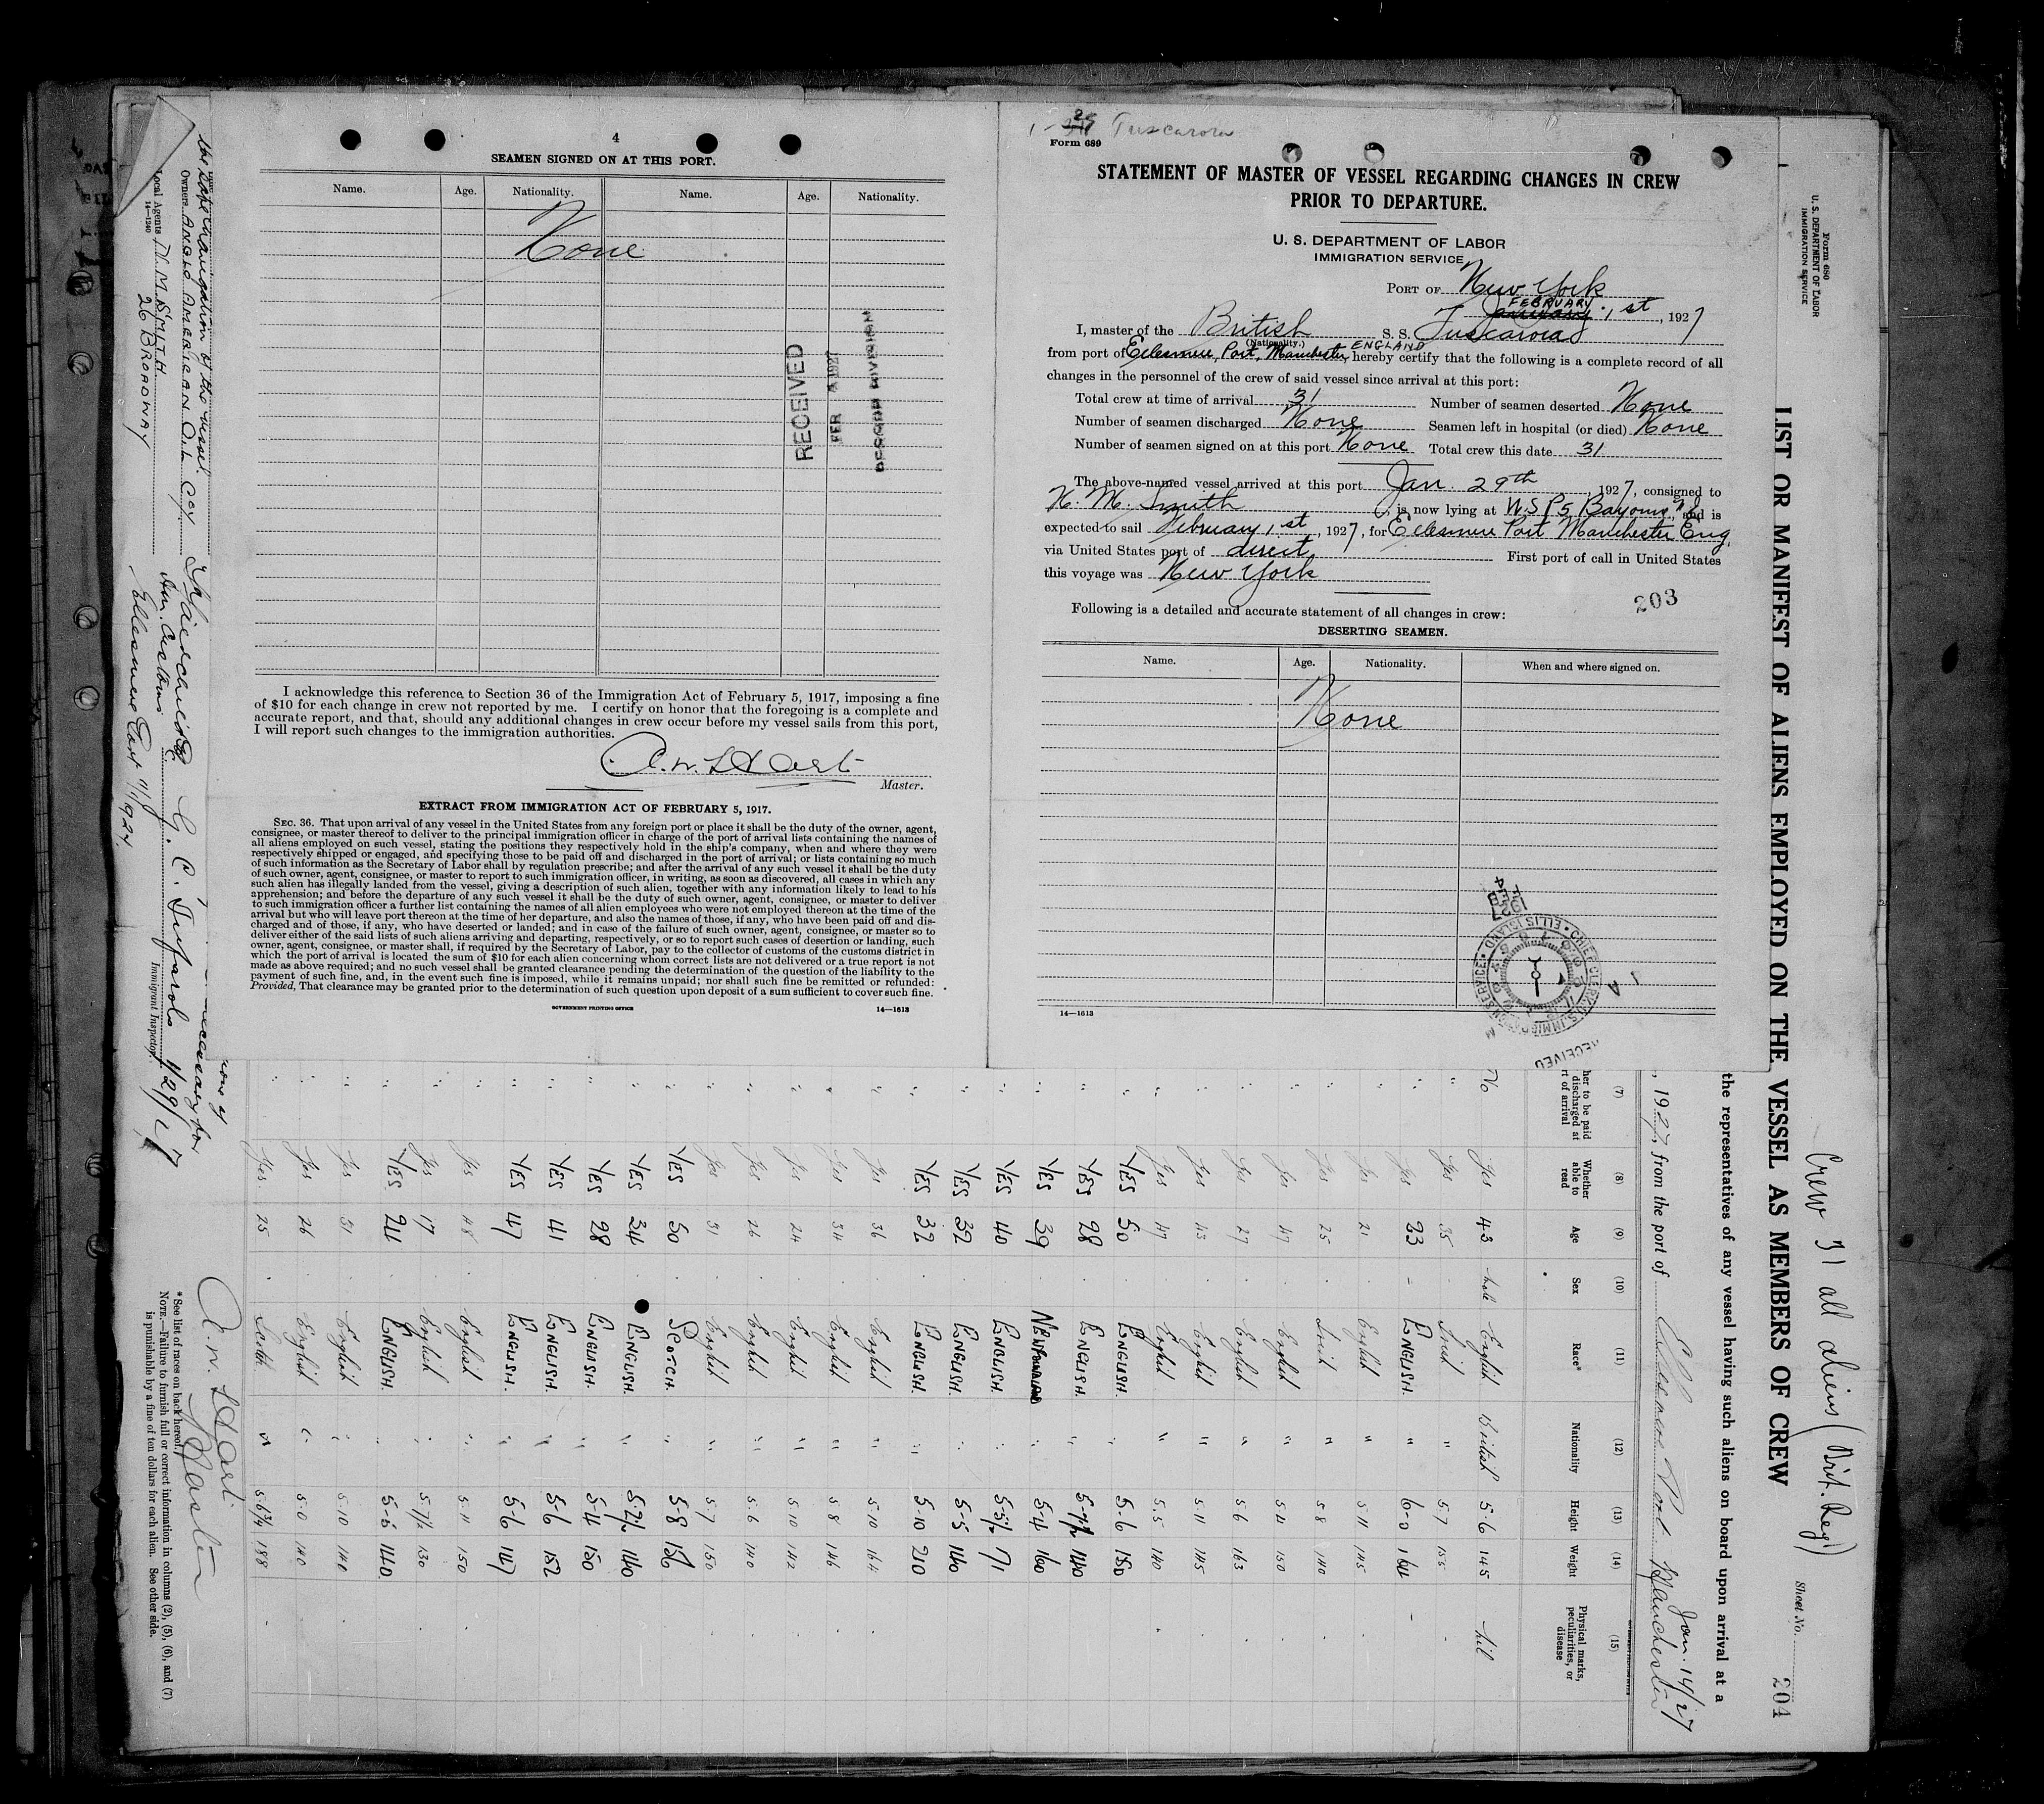 4
SEAMEN SIGNED ON AT THIS PORT.
Name. Age. Nationality. Name. Age. Nationality.
None
RECEIVED
FEB 1927
I acknowledge this reference to Section 36 of the Immigration Act of February 5, 1917, imposing a fine
of $10 for each change in crew not reported by me. I certify on honor that the foregoing is a complete and
accurate report, and that, should any additional changes in crew occur before my vessel sails from this port,
I will report such changes to the immigration authorities.
Master.
EXTRACT FROM IMMIGRATION ACT OF FEBRUARY 5, 1917.
SEC. 36. That upon arrival of any vessel in the United States from any foreign port or place it shall be the duty of the owner, agent,
consignee, or master thereof to deliver to the principal immigration officer in charge of the port of arrival lists containing the names of
all aliens employed on such vessel, stating the positions they respectively hold in the ship's company, when and where they were
respectively shipped or engaged, and specifying those to be paid off and discharged in the port of arrival; or lists containing so much
of such information as the Secretary of Labor shall by regulation prescribe; and after the arrival of any such vessel it shall be the duty
of such owner, agent, consignee, or master to report to such immigration officer, in writing, as soon as discovered, all cases in which any
such alien has illegally landed from the vessel, giving a description of such alien, together with any information likely to lead to his
apprehension; and before the departure of any such vessel it shall be the duty of such owner, agent, consignee, or master to deliver
to such immigration officer a further list containing the names of all alien employees who were not employed thereon at the time of the
arrival but who will leave port thereon at the time of her departure, and also the names of those, if any, who have been paid off and dis-
charged and of those, if any, who have deserted or landed; and in case of the failure of such owner, agent, consignee, or master so to
deliver either of the said lists of such aliens arriving and departing, respectively, or so to report such cases of desertion or landing, such
owner, agent, consignee, or master shall, if required by the Secretary of Labor, pay to the collector of customs of the customs district in
which the port of arrival is located the sum of $10 for each alien concerning whom correct lists are not delivered or a true report is not
made as above required; and no such vessel shall be granted clearance pending the determination of the question of the liability to the
payment of such fine, and, in the event such fine is imposed, while it remains unpaid; nor shall such fine be remitted or refunded:
Provided, That clearance may be granted prior to the determination of such question upon deposit of a sum sufficient to cover such fine.
GOVERNMENT PRINTING OFFICE 14—1613
Tuscarora
Form 689
STATEMENT OF MASTER OF VESSEL REGARDING CHANGES IN CREW
PRIOR TO DEPARTURE.
U. S. DEPARTMENT OF LABOR
IMMIGRATION SERVICE
PORT OF New York
FEBRUARY 1st, 1927
I, master of the British S. S. Tuscarora
(Nationality.)
from port of Ellesmere Port, Manchester ENGLAND hereby certify that the following is a complete record of all
changes in the personnel of the crew of said vessel since arrival at this port:
Total crew at time of arrival 31 Number of seamen deserted None
Number of seamen discharged None Seamen left in hospital (or died) None
Number of seamen signed on at this port None Total crew this date 31
The above-named vessel arrived at this port Jan. 29th, 1927, consigned to
N. M. Smith, is now lying at Bayonne, and is
expected to sail February 1st, 1927, for Ellesmere Port Manchester Eng.
via United States port of direct First port of call in United States
this voyage was New York
203
Following is a detailed and accurate statement of all changes in crew:
DESERTING SEAMEN.
Name. Age. Nationality. When and where signed on.
None
14—1613
RECEIVED
Form 680
U. S. DEPARTMENT OF LABOR
IMMIGRATION SERVICE
LIST OR MANIFEST OF ALIENS EMPLOYED ON THE VESSEL AS MEMBERS OF CREW
Crew 31 all aliens (Brit. Reg.)
Sheet No.
204
the representatives of any vessel having such aliens on board upon arrival at a
, 1927, from the port of Ellesmere Port Manchester Jan. 14/27
(7) (8) (9) (10) (11) (12) (13) (14) (15)
her to be paid discharged at rt of arrival
Whether able to read
Age
Sex
Race*
Nationality
Height
Weight
Physical marks, peculiarities, or disease
No Yes 43 Male English British 5-6 145 Nil
" Yes 35 Irish " 5-7 155
" Yes 23 - ENGLISH. " 6-0 164 -
" Yes 21 English " 5-11 145
" Yes 25 Irish " 5-8 140
" Yes 47 English " 5-4 150
" Yes 27 English " 5-6 163
" Yes 43 English " 5-11 145
" Yes 47 English " 5-5 140
" YES 50 ENGLISH. 5-6 150
" YES 28 ENGLISH. " 5-7½ 140
" YES 39 " 5-4 160
" YES 40 ENGLISH. " 5-5½ 171
" YES 32 ENGLISH. " 5-5 140
" YES 32 ENGLISH. " 5-10 210
" Yes 36 English " 5-10 164
" Yes 34 English " 5-8 146
" Yes 24 English " 5-10 142
" Yes 26 English " 5-6 140
" Yes 31 English " 5-7 150
" YES 50 SCOTCH. " 5-8 156
" YES 34 ENGLISH. " 5-2½ 140
" YES 28 ENGLISH. " 5-4 150
" YES 41 ENGLISH. " 5-6 152
" YES 47 ENGLISH. " 5-6 147
" Yes 48 English " 5-11 150
" Yes 17 English " 5-7½ 130
" YES 24 ENGLISH. " 5-6 140
" Yes 31 English " 5-10 140
" Yes 26 English " 5-0 140
" Yes 25 " 5-6¾ 188
Master
* See list of races on back hereof.
NOTE.—Failure to furnish full or correct information in columns (2), (5), (6), and (7)
is punishable by a fine of ten dollars for each alien. See other side.
necessary for
the safe navigation of the vessel.
Owners ANGLO AMERICAN OIL Coy.
Local Agents N. M. SMITH
26 BROADWAY
14—1240
1/29/27
Immigrant Inspector.
Ellesmere Port